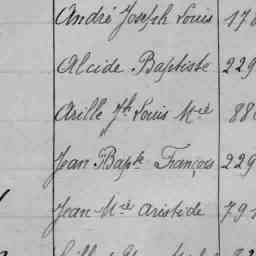 André Joseph Louis 17
Alcide Baptiste 229
Arille Jh Louis Mie 88
Jean Bapte François 229
Jean-Mie Aristide 79